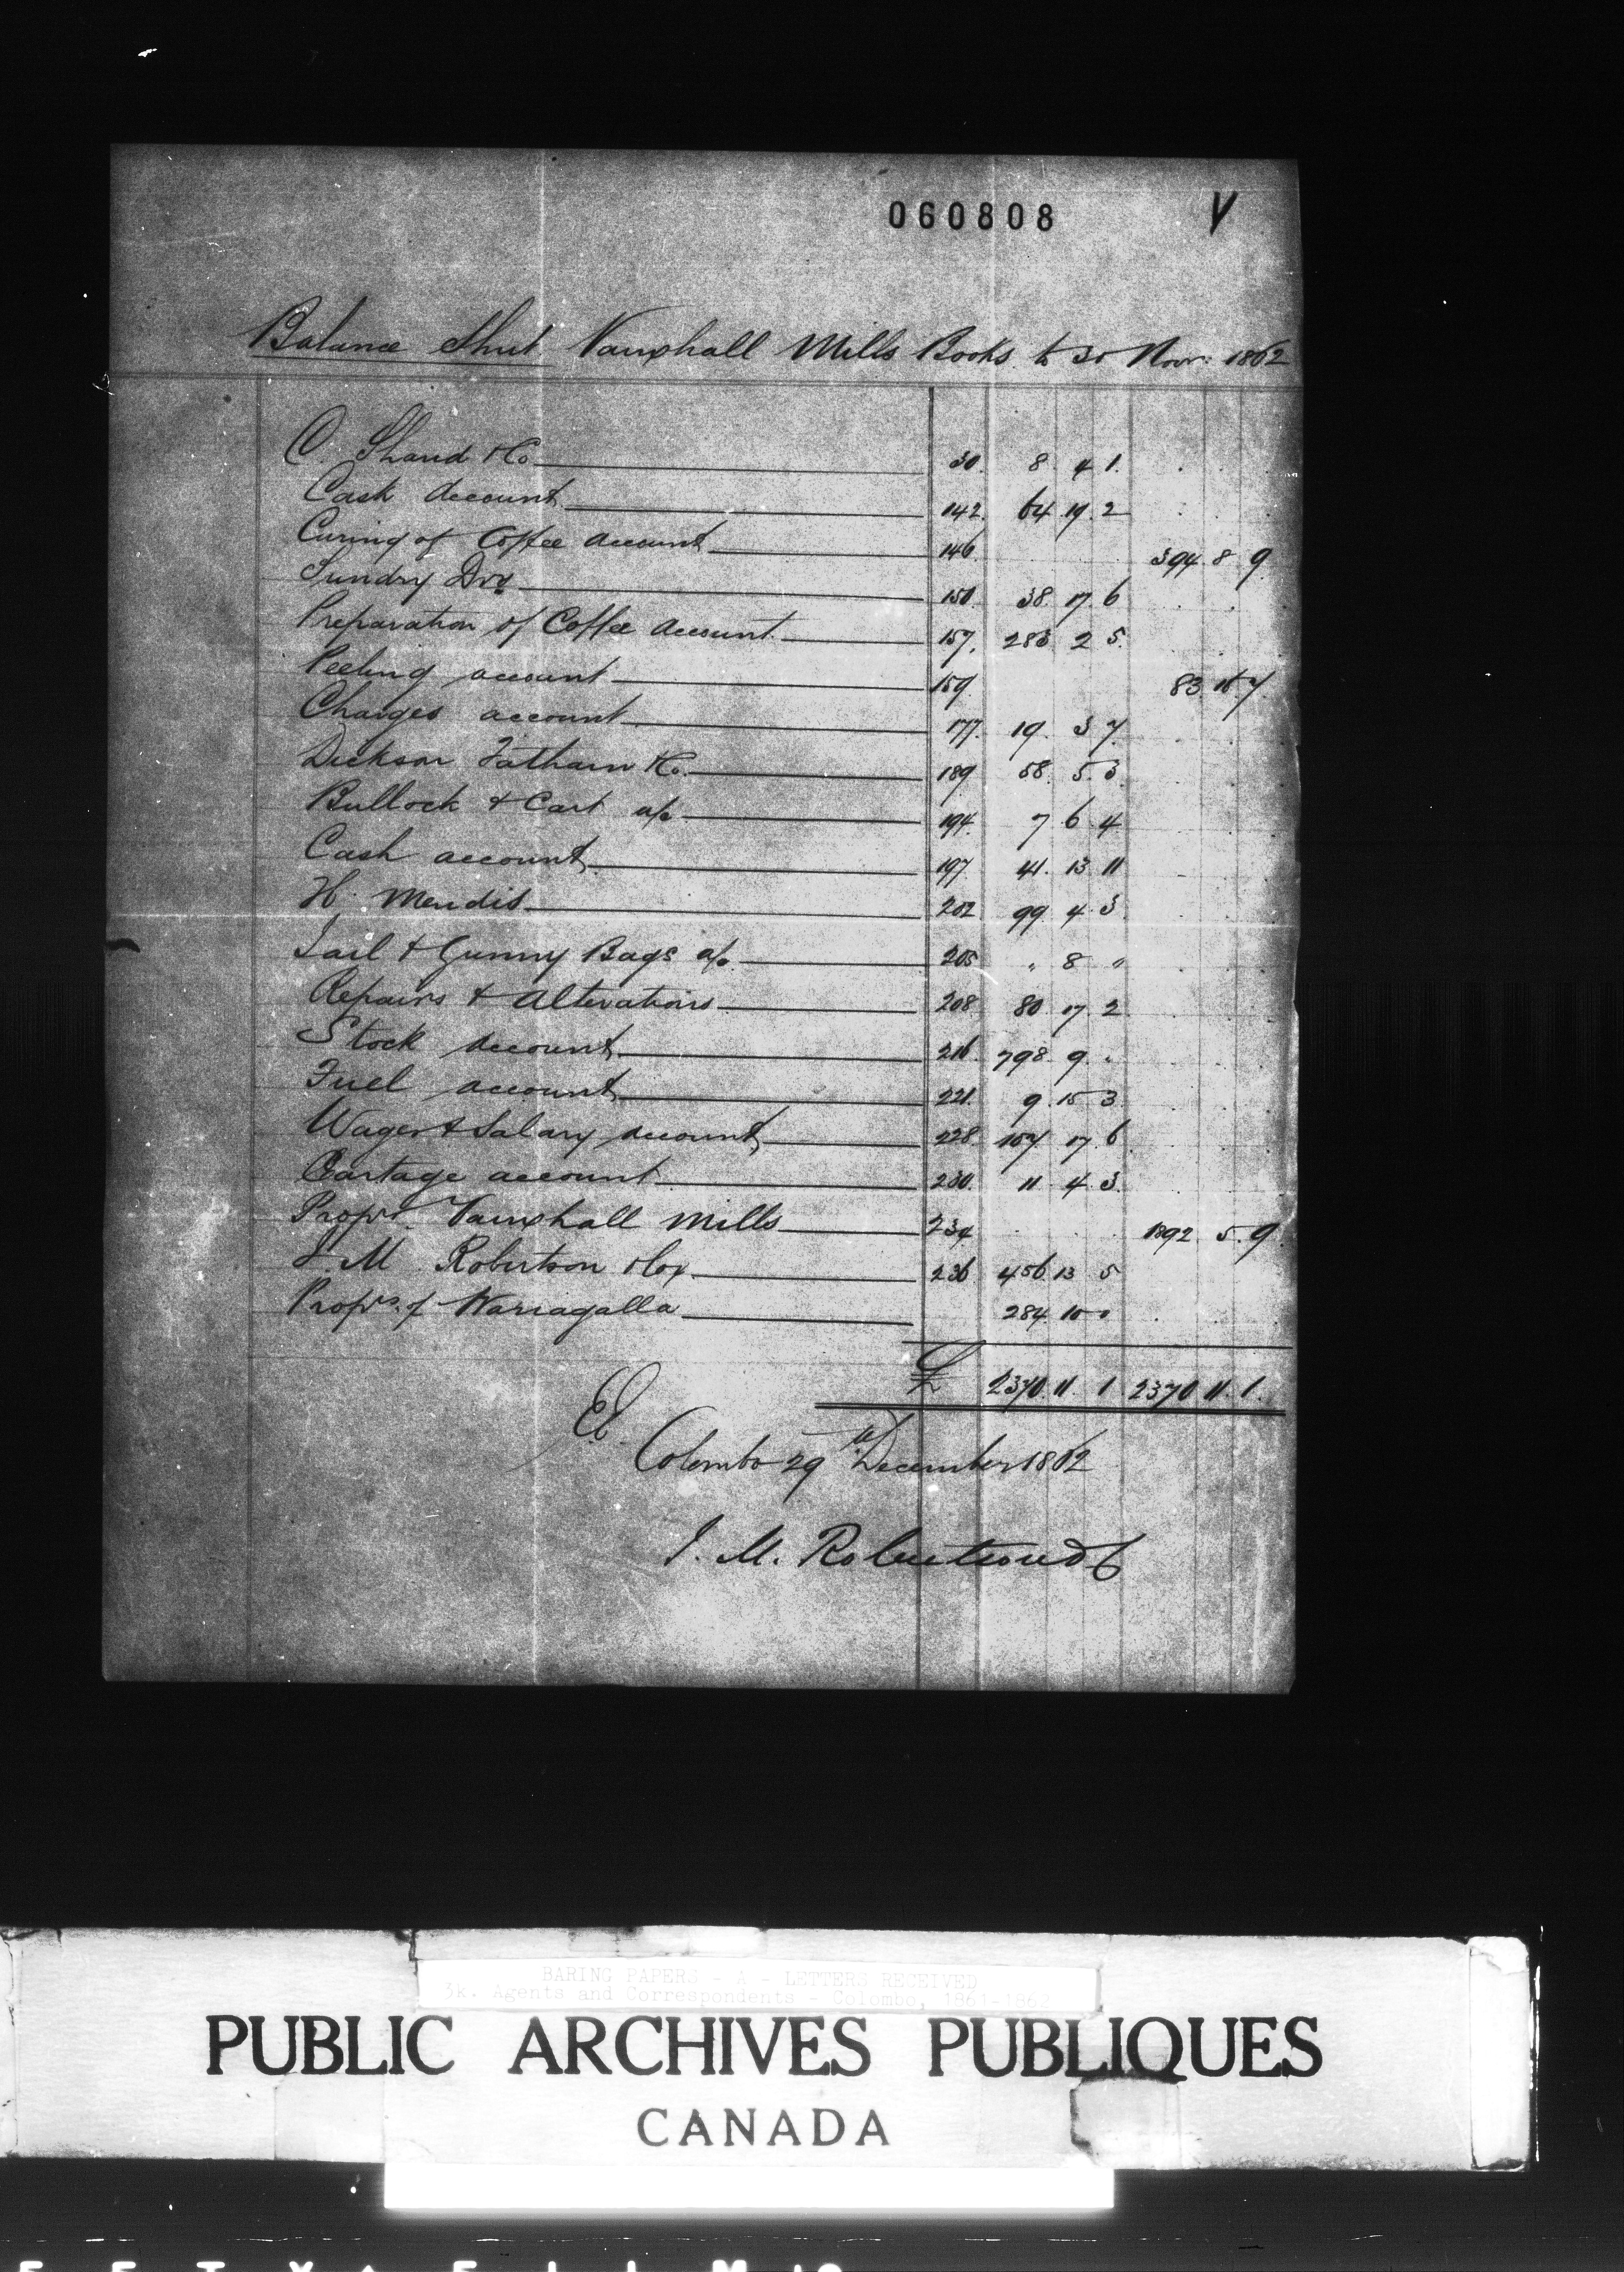 060808 V
Balance Sheet Vauxhall Mills Books to 30 Novr. 1862
C. Shand & Co 30. 8 4 1
Cash Account 142. 64 19 2
Curing of Coffee Account 146 394 8 9
Sundry Drs 150 38 17 6
Preparation of Coffee Account 157. 283 2 5
Peeling account 159 83 16 7
Charges account 177. 19 3 7
Dickson Tatham & Co. 189 58 5 3
Bullock & Cart a/c 194 7 6 4
Cash account 197 41 13 11
H. Mendis 202 99 4 3
Sail & Gunny Bags a/c 205 " 8 "
Repairs & Alterations 208 80 17 2
Stock Account 216 798 9 "
Fuel account 221 9 15 3
Wages & Salary Account 228 107 17 6
Cartage account 230. 11 4 3
Proprs. Vauxhall Mills 234 1892 5 9
J. M. Robertson & Co 236 456 13 5
Proprs. of Wariagalla 284 10 0
£ 2370 11 1 2370 11 1
EE
Colombo 29th December 1862
J. M. Robertson & Co
BARING PAPERS - A - LETTERS RECEIVED
3k. Agents and Correspondents - Colombo, 1861-1862
PUBLIC ARCHIVES PUBLIQUES
CANADA